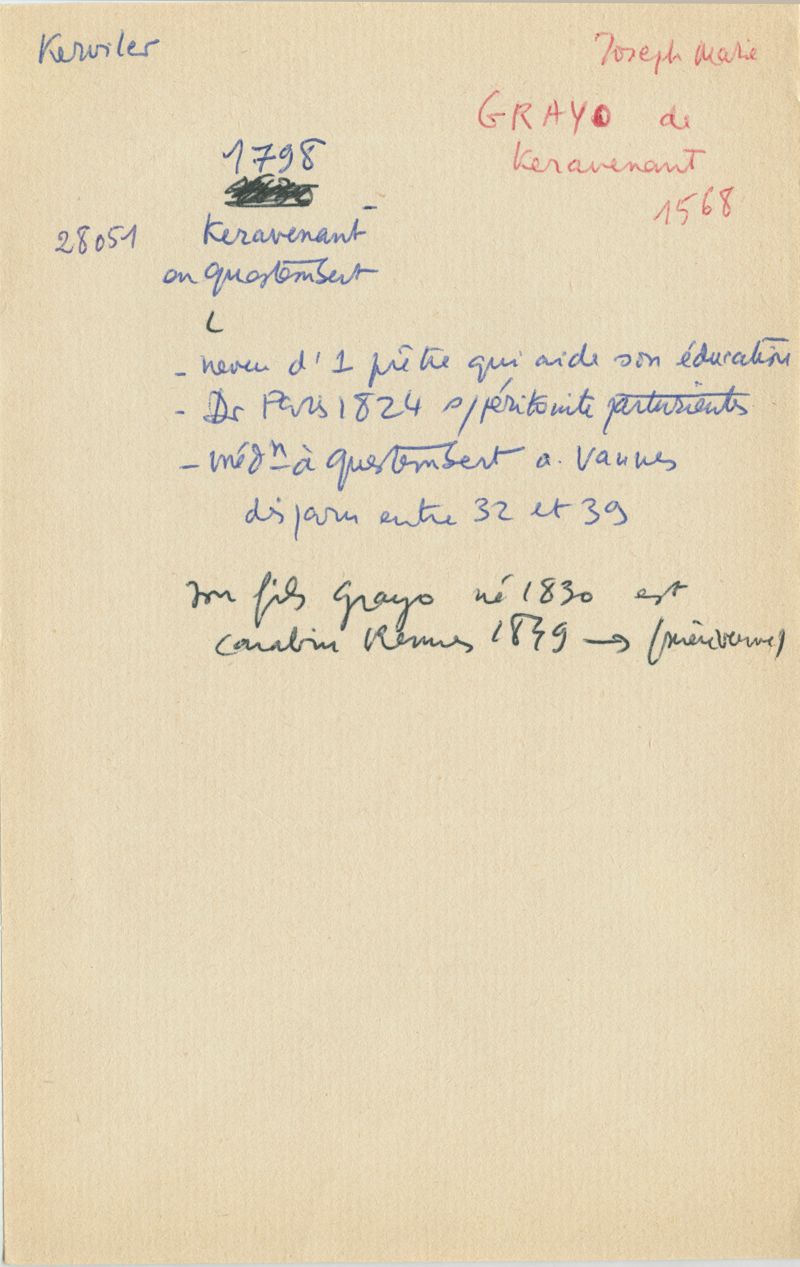 Kerviler
Joseph Marie
GRAYO de
Keravenant
1568
1798
28051 Keravenant
en Questembert
- neveu d'1 prêtre qui aide son éducation
- Dr Paris 1824 s/péritonite parturientes
- médn à Questembert a. Vannes
disparu entre 32 et 39
son fils Grayo né 1830 est
carabin Rennes 1849 →